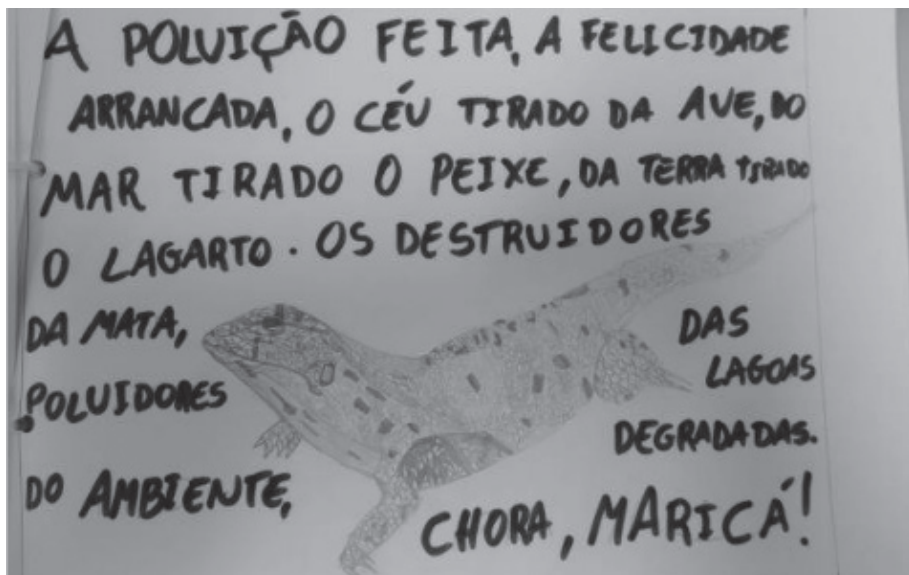 A POLUIÇÃO FEITA, A FELICIDADE
ARRANCADA, O CÉU TIRADO DA AVE, DO
MAR TIRADO O PEIXE, DA TERRA TIRADO
O LAGARTO. OS DESTRUIDORES
DA MATA,
POLUIDORES
DO AMBIENTE,
DAS
LAGOAS
DEGRADADAS.
CHORA, MARICÁ!